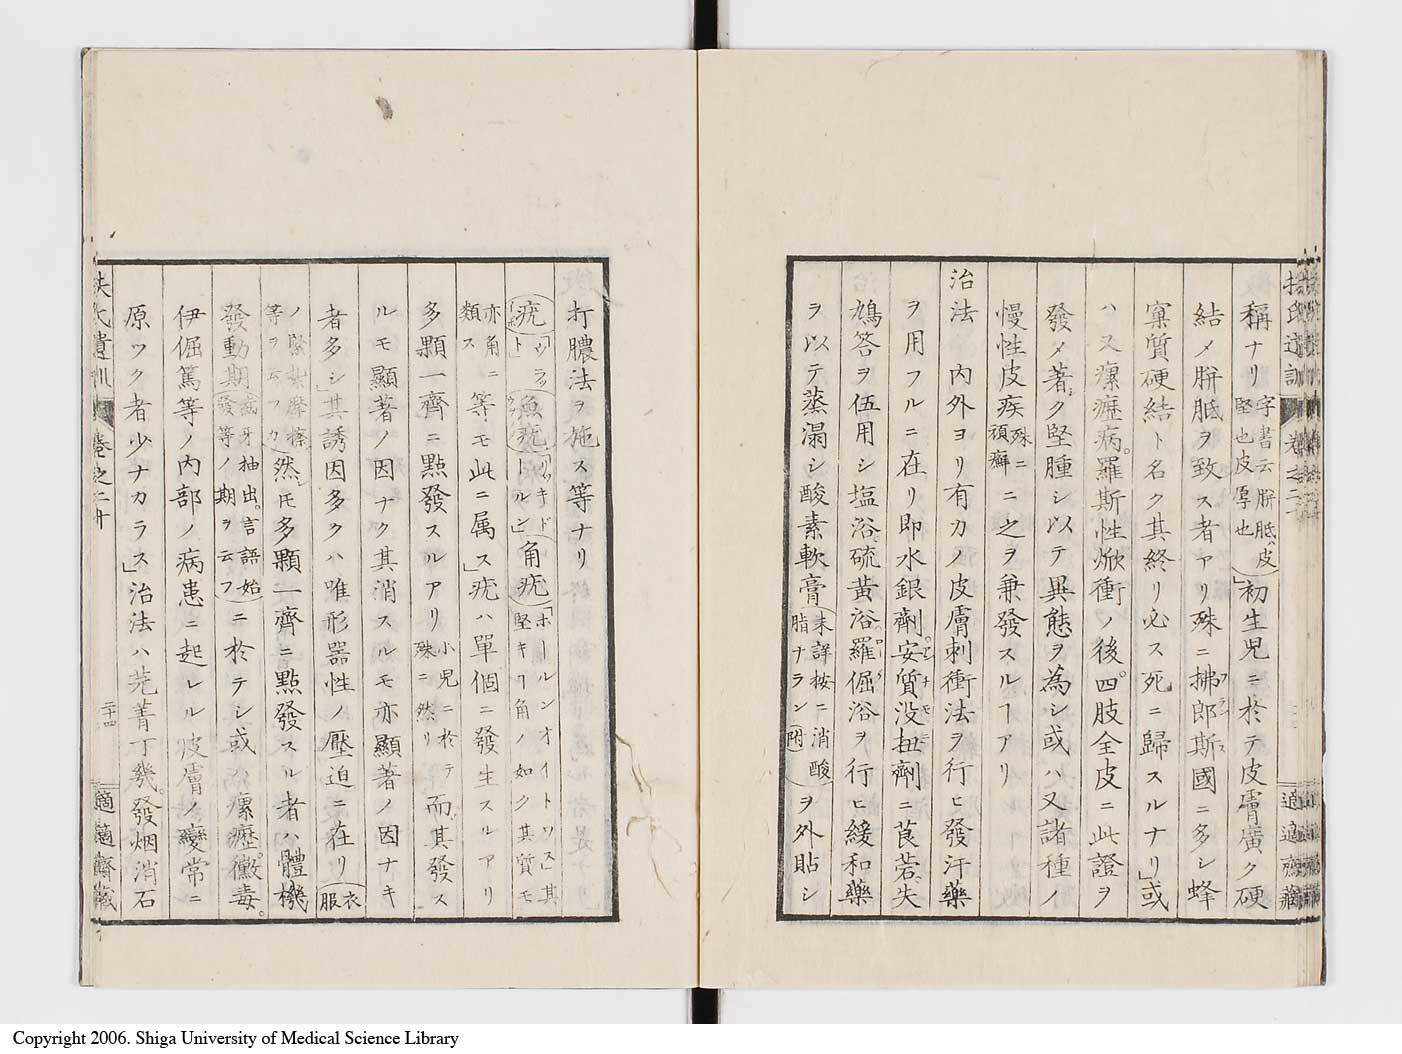 稱ナリ字書云胼胝ハ皮堅也皮厚也」初生児ニ於テ皮膚廣ク硬
結メ胼胝ヲ致ス者アリ殊ニ拂郎斯國ニ多シ蜂
窠質硬結ト名ク其終リ必ス死ニ歸スルナリ」或
ハ又瘰癧病。羅斯性焮衝ノ後。四肢全皮ニ此證ヲ
發メ著ク堅腫シ以テ異態ヲ為シ或ハ又諸種ノ
慢性皮疾殊ニ頑癬ニ之ヲ兼發スルヿアリ
治法 内外ヨリ有力ノ皮膚刺衝法ヲ行ヒ發汗藥
ヲ用フルニ在リ即水銀劑。安質没扭劑ニ莨菪。失
鳩答ヲ伍用シ塩浴。硫黄浴。羅倔浴ヲ行ヒ緩和藥
ヲ以テ蒸溻シ酸素軟膏(未詳按ニ消酸脂ナラン附)ヲ外貼シ
打膿法ヲ施ス等ナリ
疣「ウラット」漁疣「リッキドルン」角疣「ホールンオイトワス」其堅キヿ角ノ如ク其質モ
亦角ニ類ス等モ此ニ属ス」疣ハ單個ニ發生スルアリ
多顆一齊ニ點發スルアリ小児ニ於テ殊ニ然リ而其發ス
ルモ顯著ノ因ナク其消スルモ亦顯著ノ因ナキ
者多シ」其誘因多クハ唯形器性ノ壓迫ニ在リ(衣服
ノ緊紮摩擦等ヲ云フカ)然㪽多顆一齊ニ點發スル者ハ體機
發動期(或牙抽出。言語始發等ノ期ヲ云フ)ニ於テシ或瘰癧。黴毒。
伊倔篤等ノ内部ノ病患ニ起レル皮膚ノ變常ニ
原ツク者少ナカラス」治法ハ芫菁丁幾。發烟消石
扶氏遺訓 巻之二十 二十四 適適齋藏